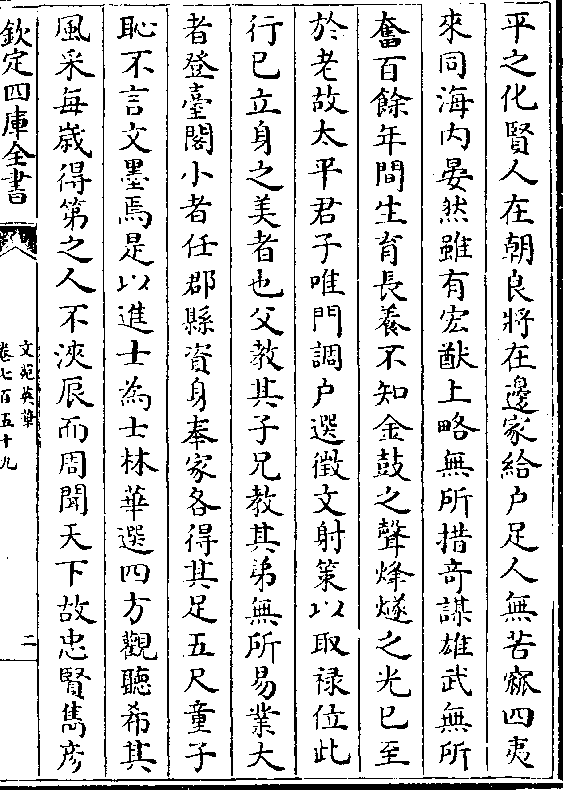 平之化賢人在朝良將在邊家給户足人無苦窳四夷
來同海内晏然雖有宏猷上略無所措竒謀雄武無所
奮百餘年間生育長養不知金鼓之聲烽燧之光已至
於老故太平君子唯門調户選徴文射策以取禄位此
行已立身之美者也父教其子兄教其弟無所易業大
者登臺閣小者任郡縣資身奉家各得其足五尺童子
恥不言文墨焉是以進士為士林華選四方觀聽希其
風采每歳得第之人不浹辰而周聞天下故忠賢雋彦
欽定四庫全書
文苑英華
卷七百五十九
二